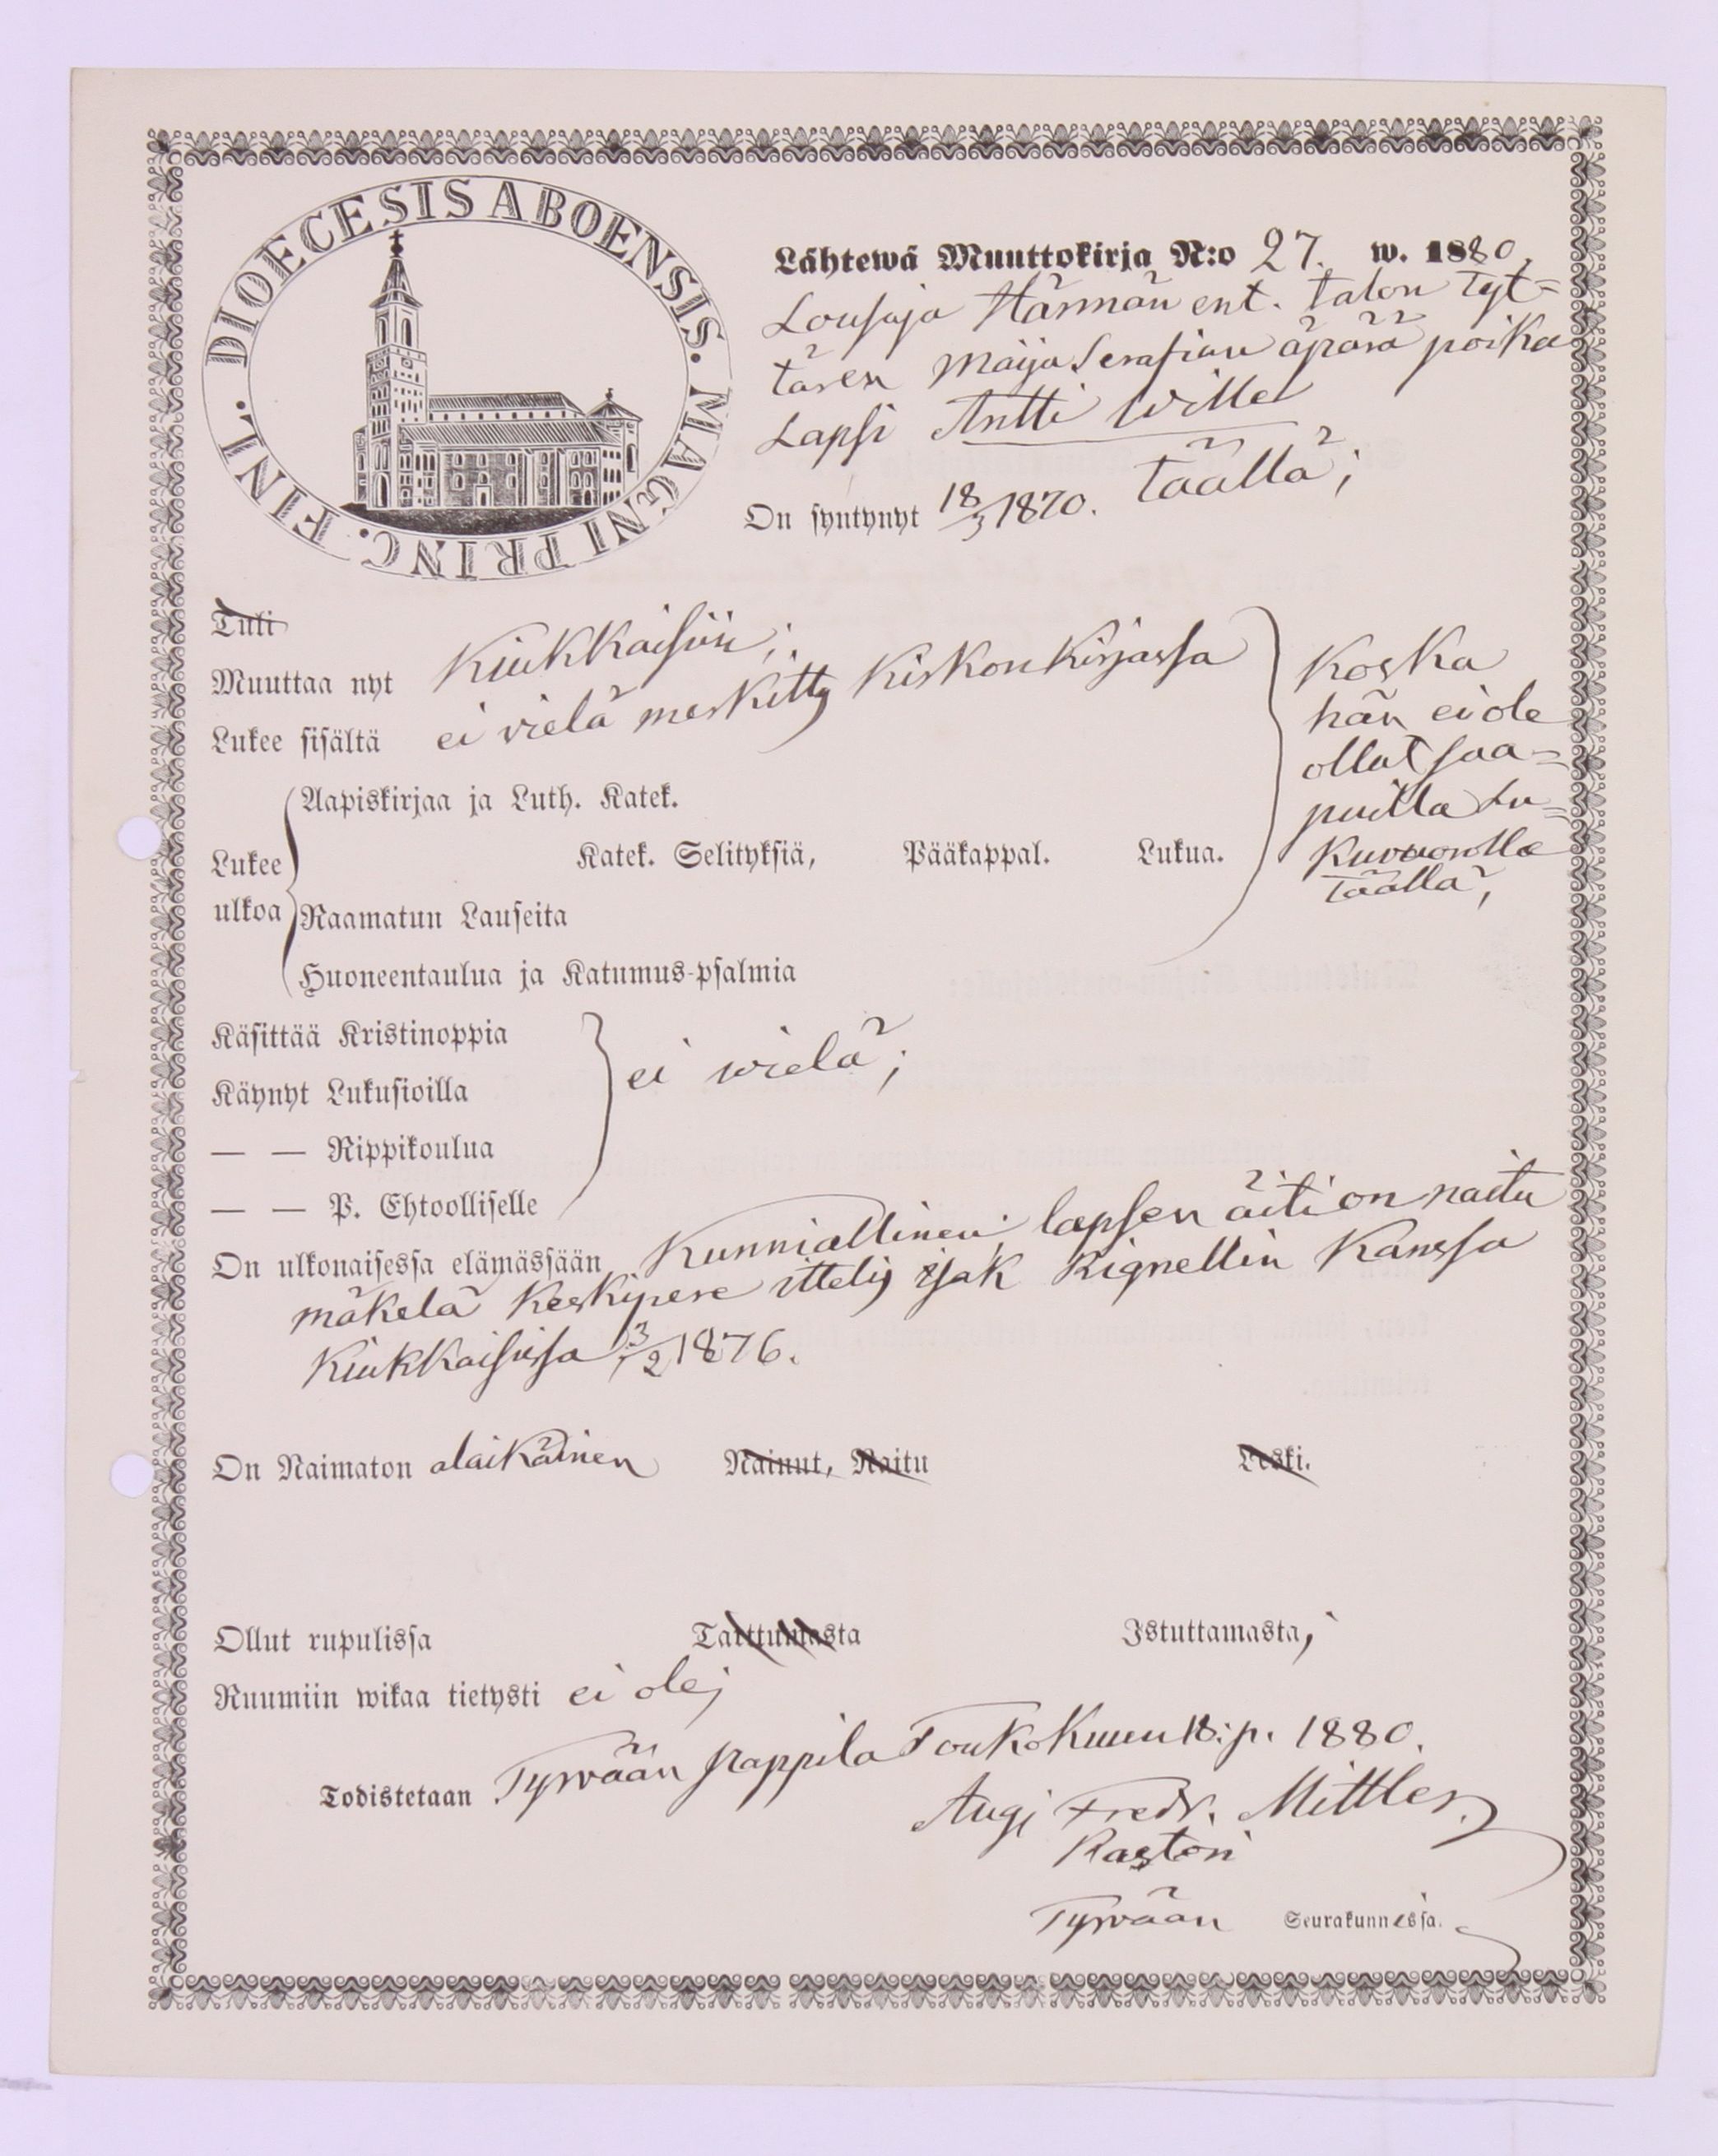 DIOECESIS ABOENSIS. MAGNI PRINC. FINL.
Lähtewä Muuttokirja N:o 27. w. 1880.
Lousaja Härmän ent. talon tyt-
tären Maija Serafian äpärä poika
Lapsi Antti Wille
On syntynyt 18/3 1870. täällä;
Tuli
Muuttaa nyt Kiukkaisiin;
Lukee sisältä ei vielä merkitty Kirkonkirjassa
Koska
hän ei ole
ollut saa-
puilla Lu-
Kuvuorolla
täällä,
Aapiskirjaa ja Luth. Katek.
Lukee Katek. Selityksiä, Pääkappal. Lukua.
ulkoa Raamatun Lauseita
Huoneentaulua ja Katumus-psalmia
Käsittää Kristinoppia
ei wielä;
Käynyt Lukusioilla
— — Rippikoulua
— — P. Ehtoolliselle
On ulkonaisessa elämässään Kunniallinen; lapsen äiti on naitu
mäkelä Keskipere ittelis Isak Rignellin Kanssa
Kiukkaisissa 3/2 1876.
On Naimaton alaikäinen Nainut, Naitu Leski.
Ollut rupulissa Tarttumasta Istuttamasta,
Ruumiin wikaa tietysti ei ole;
Todistetaan Tyrvään pappila Toukokuun 18. p. 1880.
Aug. Fredr. Mittler.
Rastori
Tyrvään Seurakunnissa.